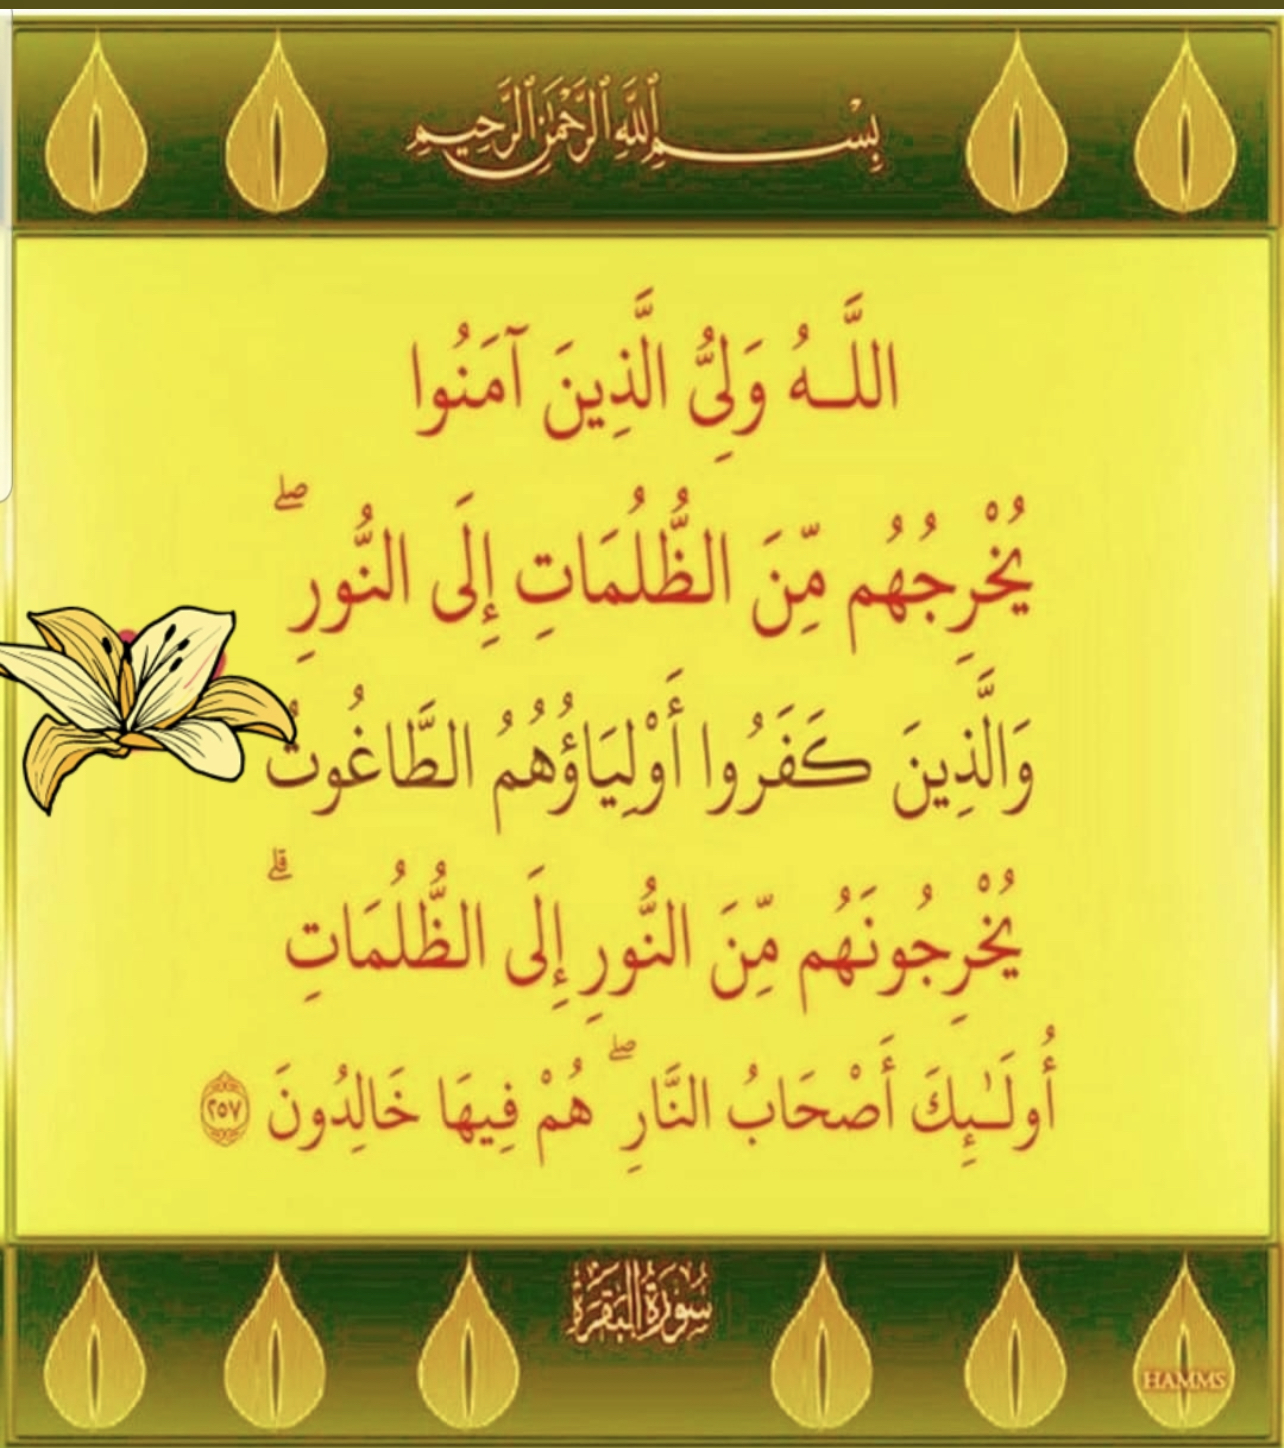 بِسْمِ اللَّهِ الرَّحْمَٰنِ الرَّحِيمِ
اللَّـهُ وَلِيُّ الَّذِينَ آمَنُوا
يُخْرِجُهُم مِّنَ الظُّلُمَاتِ إِلَى النُّورِ ۖ
وَالَّذِينَ كَفَرُوا أَوْلِيَاؤُهُمُ الطَّاغُوتُ
يُخْرِجُونَهُم مِّنَ النُّورِ إِلَى الظُّلُمَاتِ ۗ
أُولَـٰئِكَ أَصْحَابُ النَّارِ ۖ هُمْ فِيهَا خَالِدُونَ ﴿٢٥٧﴾
سُورَةُ البَقَرَةِ
HAMMS